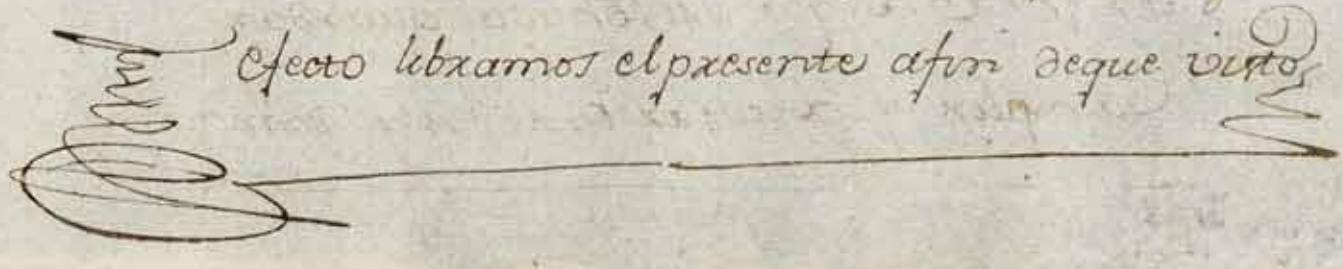 efecto libramos el presente afin deque visto